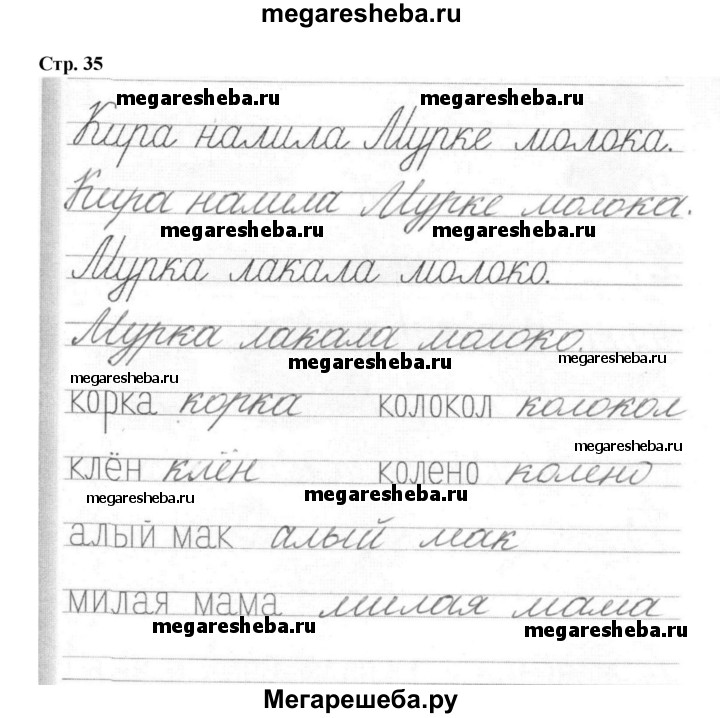 megaresheba.ru
Стр. 35
megaresheba.ru megaresheba.ru
Кира налила Мурке молока.
Кира налила Мурке молока.
megaresheba.ru megaresheba.ru
Мурка лакала молоко.
Мурка лакала молоко.
megaresheba.ru megaresheba.ru
megaresheba.ru
корка корка колокол колокол
megaresheba.ru
клён клён колено колено
megaresheba.ru megaresheba.ru
алый мак алый мак
милая мама милая мама
megaresheba.ru megaresheba.ru
Мегарешеба.ру